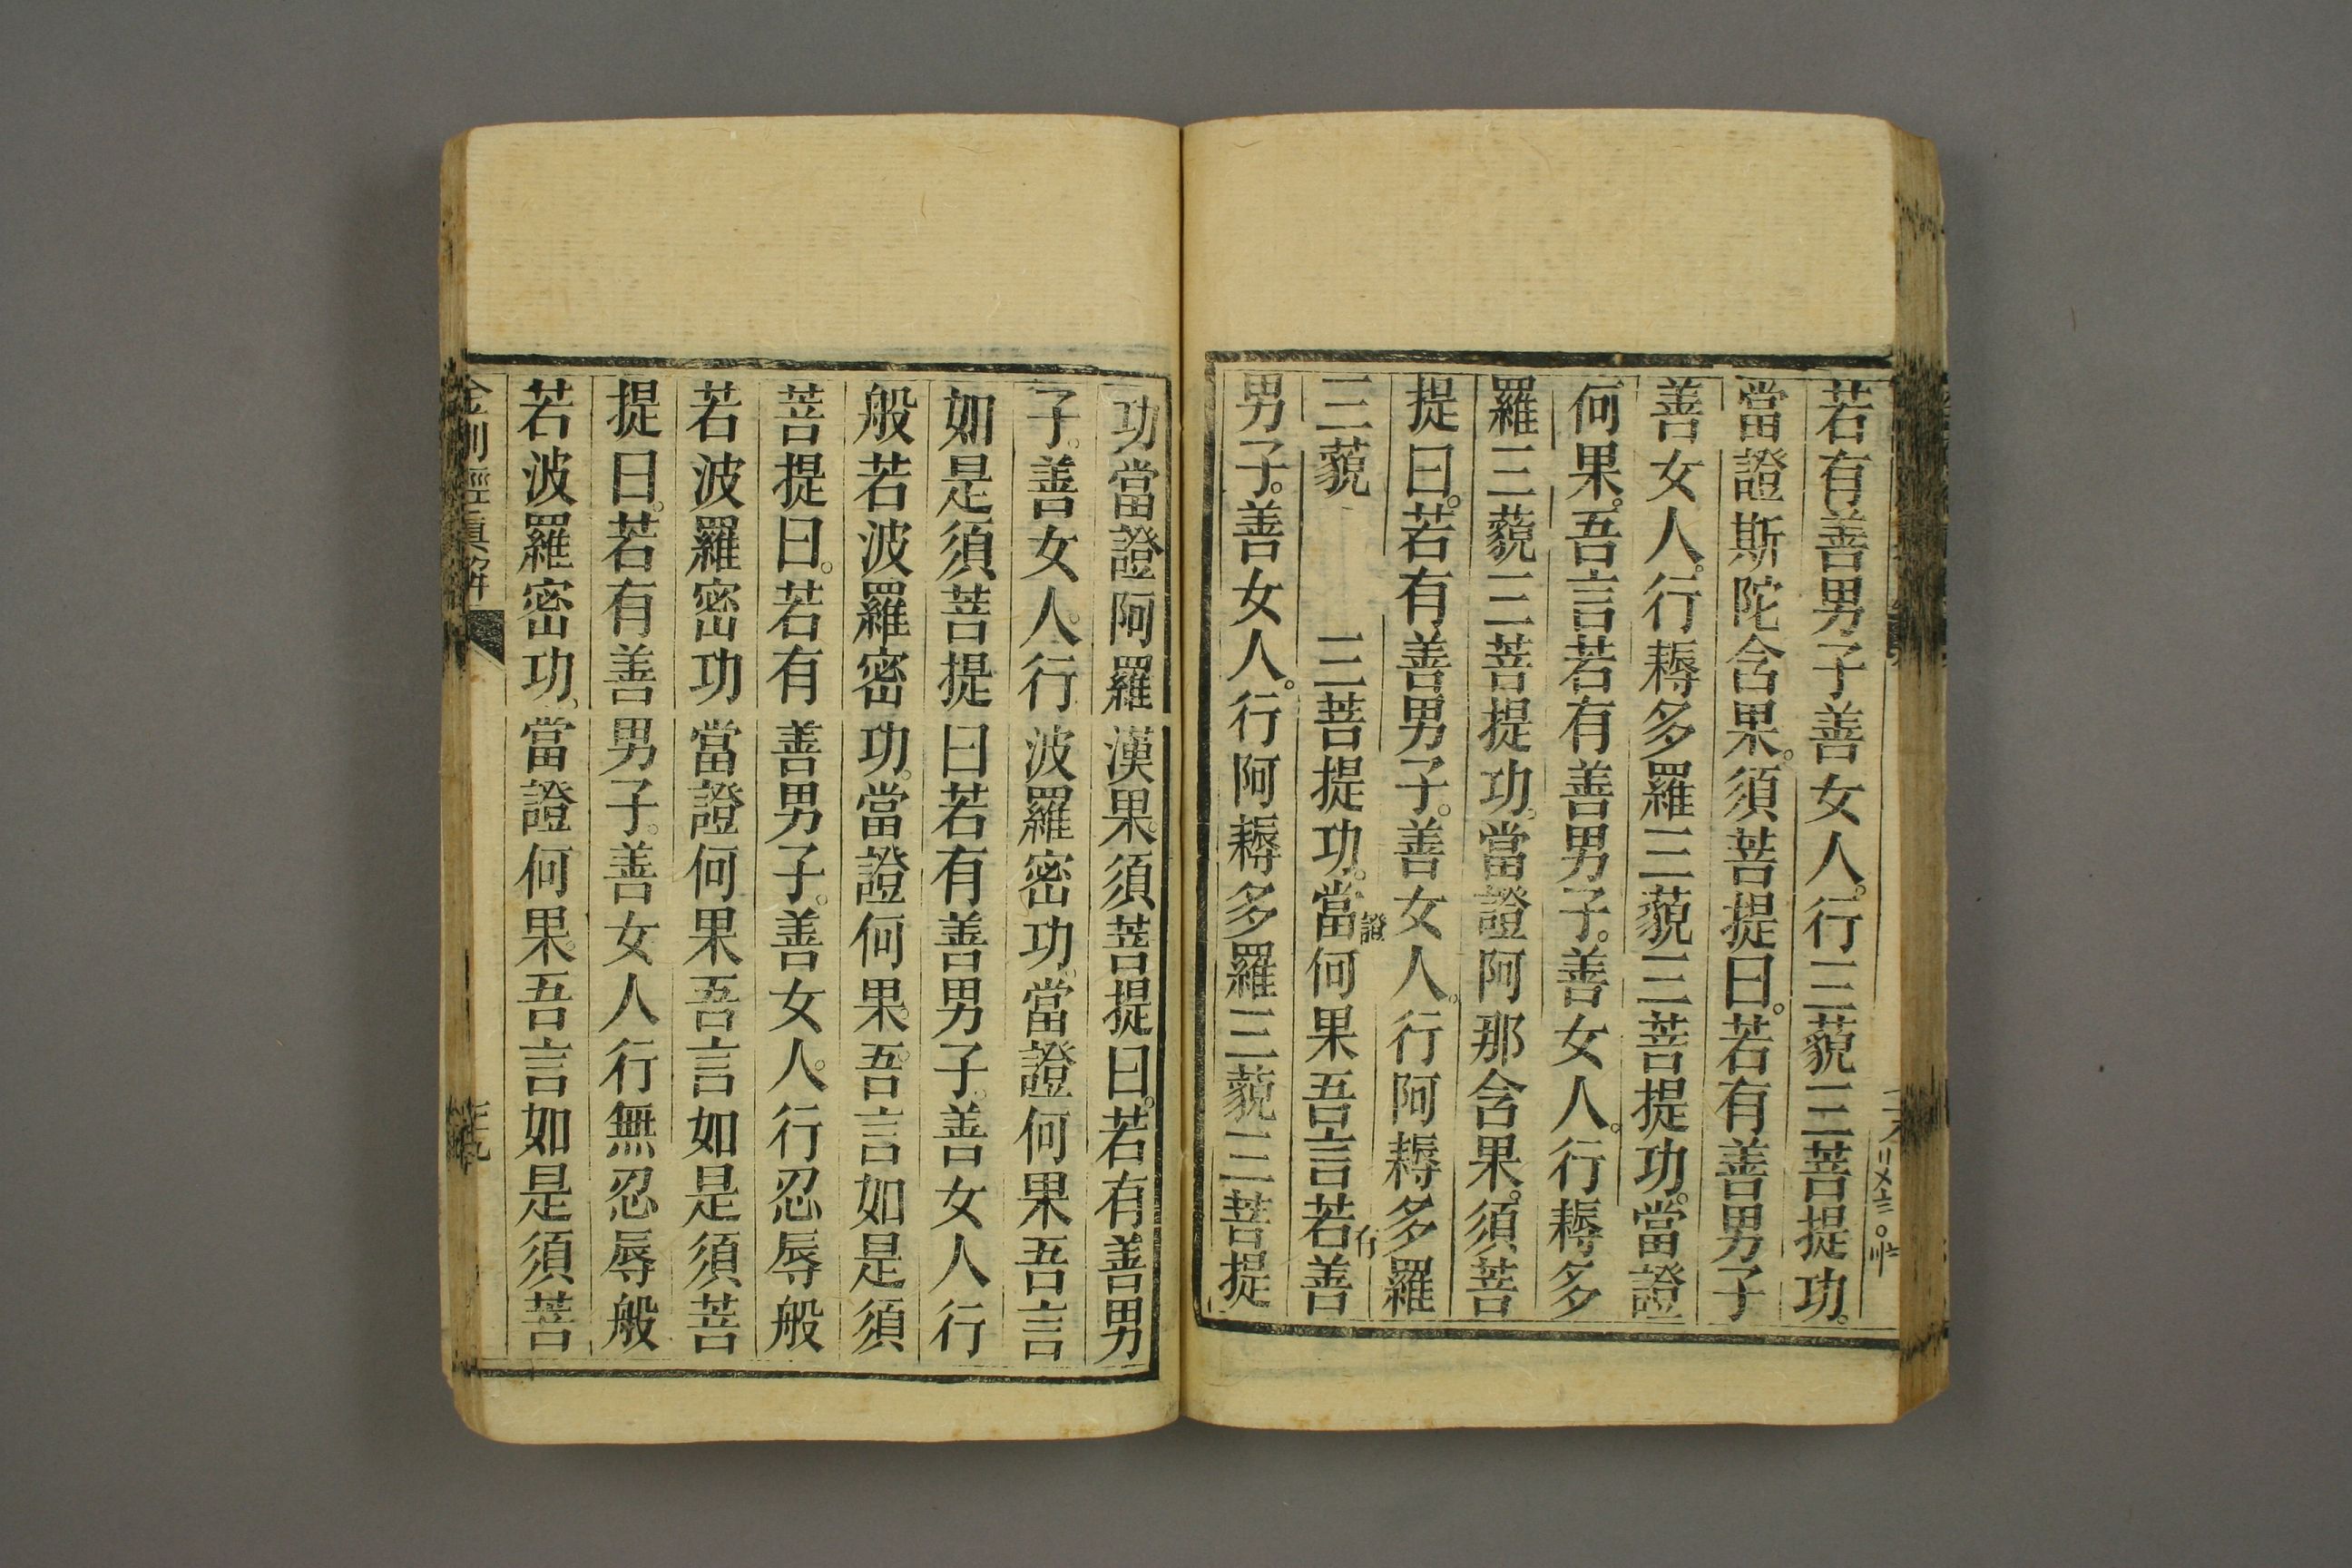 若有善男子善女人。行三藐三菩提功。
當證斯陀含果。須菩提曰。若有善男子
善女人。行耨多羅三藐三菩提功。當證
何果。吾言若有善男子。善女人。行耨多
羅三藐三菩提功。當證阿那含果。須菩
提曰。若有善男子。善女人。行阿耨多羅
三藐三菩提功。當證何果吾言若有善
男子。善女人。行阿耨多羅三藐三菩提
功當證阿羅漢果。須菩提曰。若有善男
子。善女人。行波羅密功。當證何果吾言
如是須菩提曰若有善男子。善女人行
般若波羅密功。當證何果。吾言如是須
菩提曰。若有善男子。善女人。行忍辱般
若波羅密功當證何果吾言如是須菩
提曰。若有善男子。善女人行無忍辱般
若波羅密功。當證何果。吾言如是須菩
金剛經真解